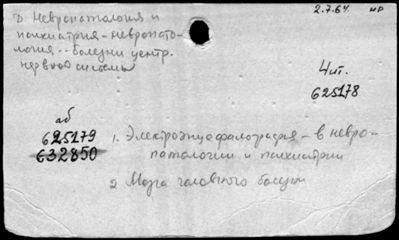 Невропатология и
психиатрия - невропато-
логия.. болезни центр.
нервной системы
2.7.64 нр
Чит.
625178
аб
625179
632850
1. Электроэнцефалография - в невро-
патологии и психиатрии
2 Мозга головного болезни